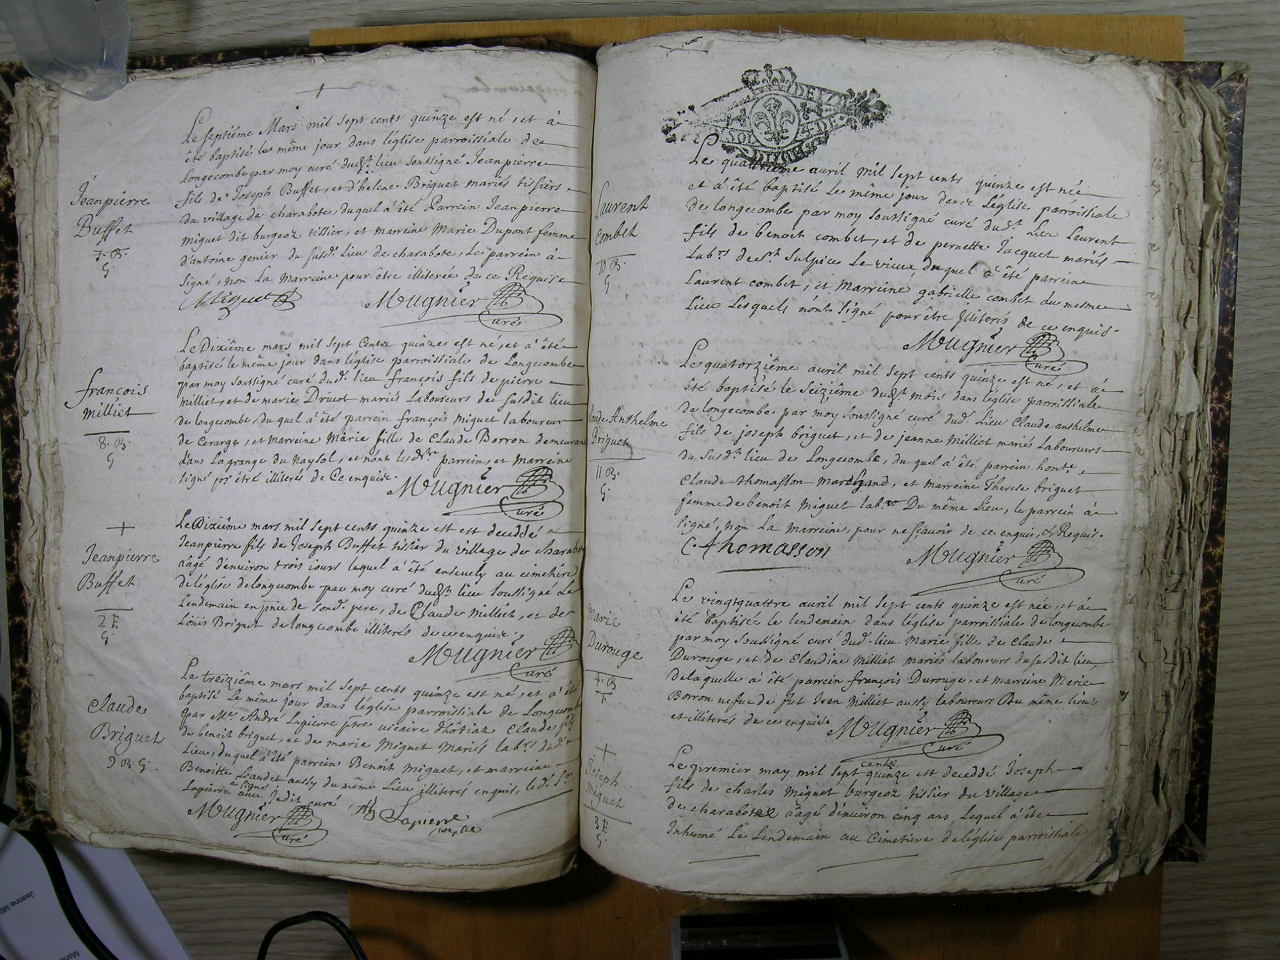 Jeanpierre
Buffet
7. B.
G.
Le septiême Mars mil sept cents quinze est né, et à
été baptisé le même jour dans léglise parroissiale de
Longecombe par moy curé dud.t lieu soussigné Jeanpierre
fils de Joseph Buffet, et d'hélene Briguet mariés tissiers
du village de charabote, duquel a été Parrein Jeanpierre
Miguet dit burgeoz tissier, et marreine Marie Dupont femme
d'antoine genier du susd.t Lieu de charabote, Le parrein à
signé, non La Marreine pour être illiterée de ce Requise
Miguet Mugnier
curé
françois
Milliet
8. B.
G.
Le Dixiême mars mil sept Cents quinze est né, et a été
baptisé le même jour dans léglise parroissiale de Longecombe
par moy soussigné curé dud.t lieu françois fils de pierre
milliet, et de marie Druet mariés Laboureurs du susdit lieu
de longecombe, duquel a été parrein françois miguet laboureur
de Cerarge, et marreine Marie fille de Claude Borron demeurant
dans Lagrange du Naysol, et n'ont lesd.ts parrein, et marreine
signé p.r être illiterés de Ce enquis. Mugnier
curé
+
Jeanpierre
Buffet
2 E
G.
Le Dixiême mars mil sept cents quinze est est decedé
Jeanpierre fils de Joseph Buffet tissier du village de charabote
aagé denviron trois iours lequel a été ensevely au cimetiére
de léglise de longecombe par moy curé dud.t lieu soussigné Le
Lendemain en pñce de sond.t pere, de Claude Milliet, et de
Loüis Briguet de longecombe illiterés de ce enquis.
Mugnier
curé
Claude
Briguet
9 B G.
Le treiziême mars mil sept cents quinze est né, et a été
baptisé le même jour dans léglise parroissiale de Longecombe
par M.re André Lapierre p.tre vicaire dhôtiaz Claude fils
de benoit briguet, et de marie Miguet Mariés lab.rs dud.t
Lieu, duquel a été parrein Benoit miguet, et marreine
Benoitte Liaudet aussy du même Lieu illiterés enquis, led.t S.r
Lapierre a signé avec ledit curé
Mugnier A. Lapierre
curé
Laurent
Combet
10 B.
G
Le quatriême avril mil sept cents quinze est née
et a été baptisé Le même jour dans Leglise parroissiale
de longecombe par moy soussigné curé dud.t Lieu Laurent
fils de benoit combet, et de pernette Jacquet mariés
Lab.rs de S.t Sulpice Le vieux duquel a été parrein
Laurent combet, et Marreine gabrielle combet du mesme
Lieu Lesquels n'ont signé pour être Illiterés de ce enquis.
Mugnier
curé
Claude Anthelme
Briguet
11 B.
G.
Le quatorziême avril mil sept cents quinze est né, et a
été baptisé le seiziême dud.t mois dans léglise parrissiale
de longecombe par moy soussigné curé dud.t Lieu Claude anthelme
fils de joseph briguet, et de jeanne Milliet mariés Laboureurs
du Susd.t lieu de Longecombe, du quel a été parrein hon.te
Claude Thomasson marchand, et marreine Therese briguet
femme de benoit Miguet lab.r Du même Lieu, le parrein a
signé, non La marreine, pour ne sçavoir de ce enquis, et Requis.
C. Thomasson Mugnier
curé
Marie
Durouge
4. B
F
Le vingtquattre avril mil sept cents quinze est née, et a
été baptisée le lendemain dans léglise parrissiale de longecombe
par moy soussigné curé dud.t lieu Marie fille de claude
Durouge, et de Claudine Milliet mariés laboureurs du susdit lieu,
de laquelle a été parrein françois Durouge, et marreine Marie
Borron vefve de fut Jean Milliet aussy laboureurs Du même lieu
et illiterés de ce enquis Mugnier
curé
+
Joseph
Miguet
3 E
G.
Le premier may mil sept cents quinze est decedé Joseph
fils de charles Miguet burgeoz tissier du village
de charabote aagé denviron cinq ans Lequel a été
Inhumé Le Lendemain au Cimetiere de léglise parroissiale